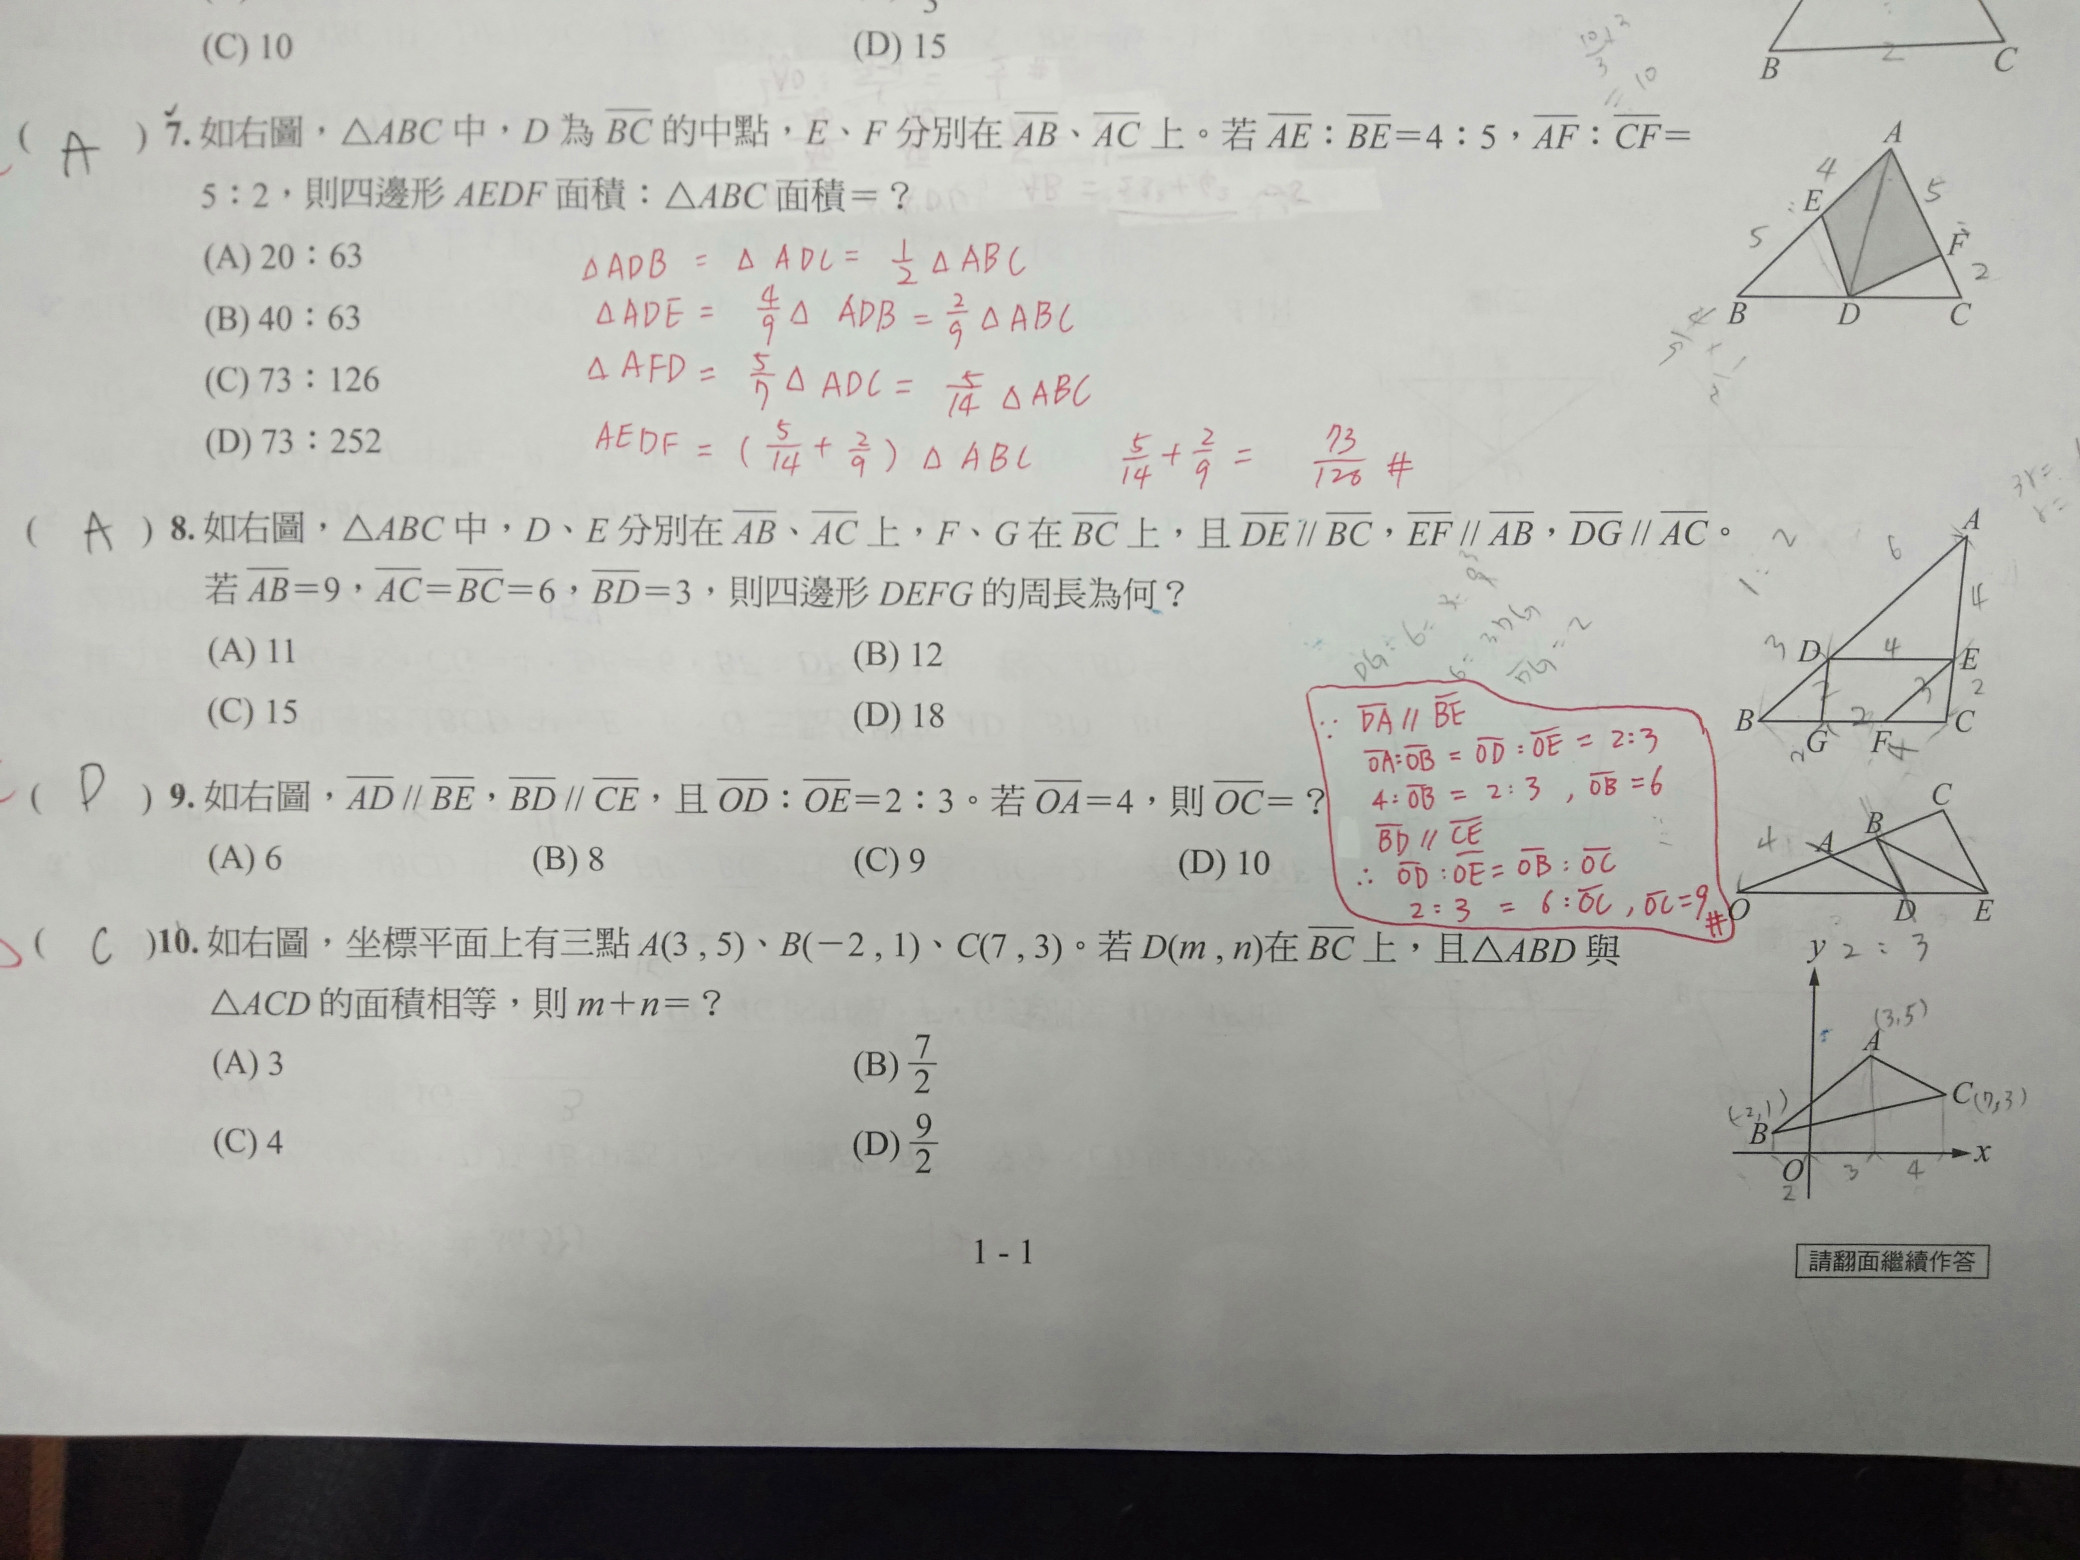 (C) 10
(D) 15
B
2
C
( A ) 7. 如右圖，△ABC 中，D 為 BC 的中點，E、F 分別在 AB、AC 上。若 AE：BE＝4：5，AF：CF＝
5：2，則四邊形 AEDF 面積：△ABC 面積＝？
(A) 20：63
(B) 40：63
(C) 73：126
(D) 73：252
△ADB = △ADC = 1/2 △ABC
△ADE = 4/9 △ADB = 2/9 △ABC
△AFD = 5/7 △ADC = 5/14 △ABC
AEDF = (5/14 + 2/9) △ABC 5/14 + 2/9 = 73/126 #
A
4
E
5
5
F
2
B D C
( A ) 8. 如右圖，△ABC 中，D、E 分別在 AB、AC 上，F、G 在 BC 上，且 DE // BC，EF // AB，DG // AC。
若 AB＝9，AC＝BC＝6，BD＝3，則四邊形 DEFG 的周長為何？
(A) 11
(B) 12
(C) 15
(D) 18
DG：6＝3：9
6＝3DG
DG＝2
1：2
A
6
4
3 D 4 E
2 3 2
B 2 C
2 G F 4
( D ) 9. 如右圖，AD // BE，BD // CE，且 OD：OE＝2：3。若 OA＝4，則 OC＝？
(A) 6
(B) 8
(C) 9
(D) 10
∵ DA // BE
OA:OB = OD:OE = 2:3
4:OB = 2:3 , OB = 6
BD // CE
∴ OD:OE = OB:OC
2:3 = 6:OC , OC=9 #
C
B
4 A
O D E
2 : 3
( C )10. 如右圖，坐標平面上有三點 A(3 , 5)、B(−2 , 1)、C(7 , 3)。若 D(m , n)在 BC 上，且△ABD 與
△ACD 的面積相等，則 m＋n＝？
(A) 3
(B) 7/2
(C) 4
(D) 9/2
y
(3,5)
A
C(7,3)
(-2,1)
B
O x
2 3 4
1 - 1
請翻面繼續作答